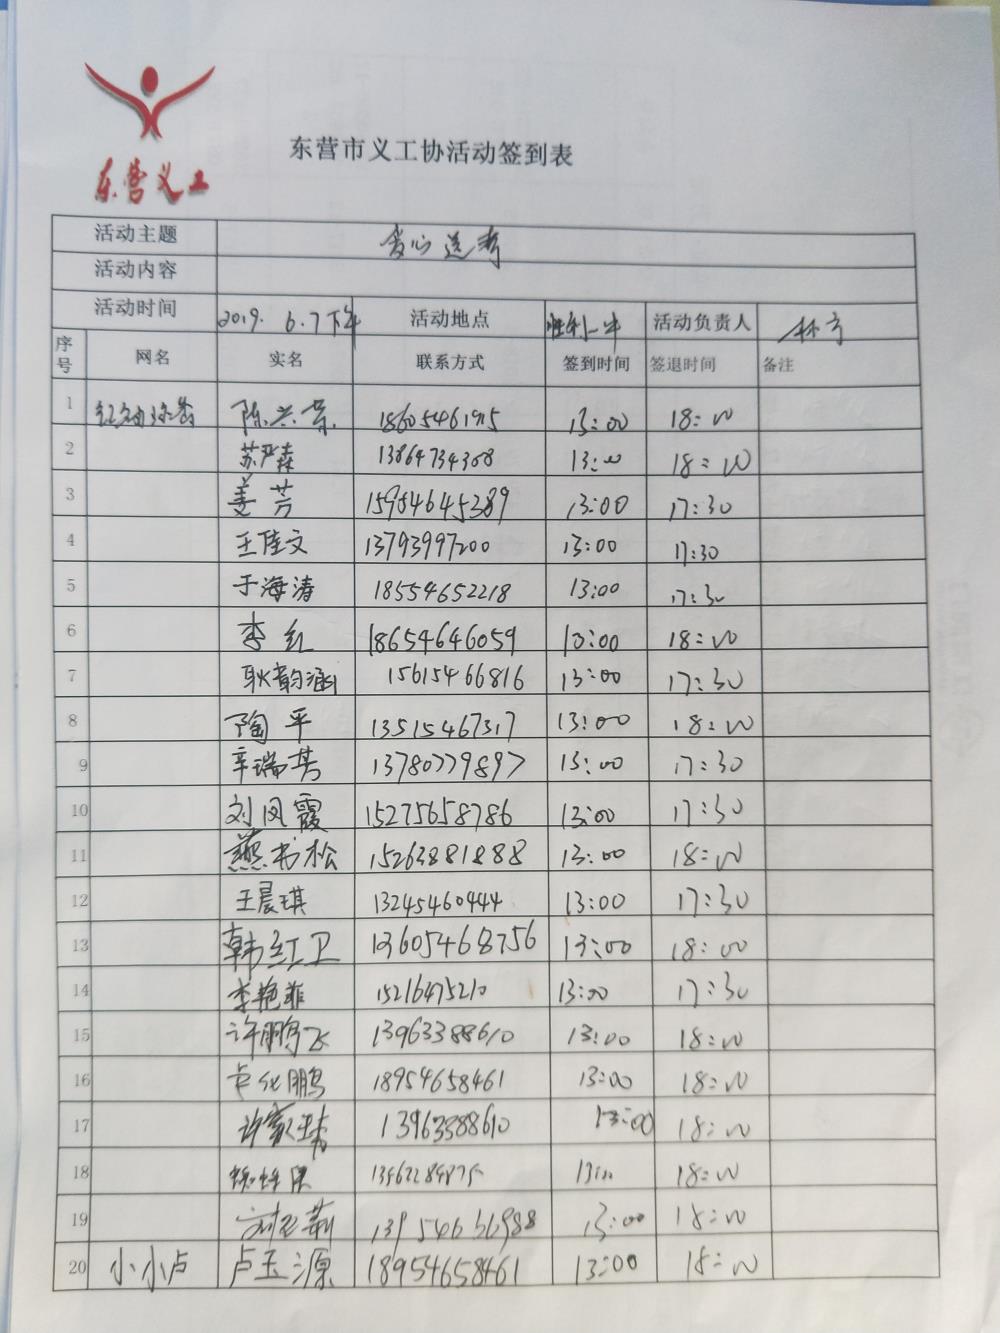 东营义工
东营市义工协活动签到表
活动主题 爱心送考
活动内容
活动时间 2019. 6.7下午 活动地点 胜利一中 活动负责人
序号 网名 实名 联系方式 签到时间 签退时间 备注
1 陈兴荣 13:00 18:00
2 苏严森 13864734368 13:00 18:00
3 姜芳 15954645389 13:00 17:30
4 王佳文 13793997200 13:00 17:30
5 于海涛 18554652218 13:00 17:30
6 李红 18654646059 13:00 18:00
7 耿韵涵 15615466816 13:00 17:30
8 陶平 13515467317 13:00 18:00
9 辛瑞其 13780779897 13:00 17:30
10 刘凤霞 15275658786 13:00 17:30
11 燕书松 15263881888 13:00 18:00
12 王晨琪 13245460444 13:00 17:30
13 韩红卫 13605468756 13:00 18:00
14 李艳菲 15216475210 13:00 17:30
15 许鹏飞 13963388610 13:00 18:00
16 卢化鹏 18954658461 13:00 18:00
17 13963388610 13:00 18:00
18 18:00
19 13:00 18:00
20 小小卢 卢玉源 18954658461 13:00 18:00